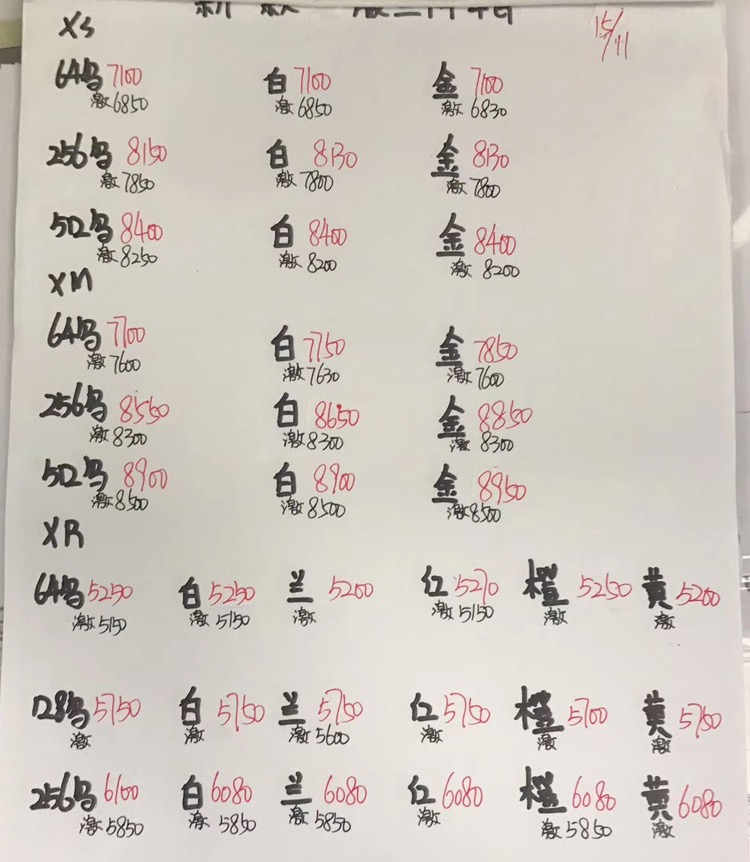 XS 15/11
64乌 7100 白 7100 金 7100
激 6850 激 6850 激 6830
256乌 8150 白 8130 金 8130
激 7850 激 7800 激 7800
512乌 8400 白 8400 金 8400
激 8250 激 8200 激 8200
XM
64乌 7700 白 7750 金 7850
激 7600 激 7630 激 7600
256乌 8550 白 8650 金 8850
激 8300 激 8300 激 8300
512乌 8900 白 8900 金 8950
激 8500 激 8500 激 8500
XR
64乌 5250 白 5250 兰 5200 红 5270 橙 5250 黄 5200
激 5150 激 5150 激 激 5150 激 激
128乌 5750 白 5750 兰 5750 红 5750 橙 5700 黄 5750
激 激 激 5600 激 激 激
256乌 6100 白 6080 兰 6080 红 6080 橙 6080 黄 6080
激 5850 激 5850 激 5850 激 激 5850 激